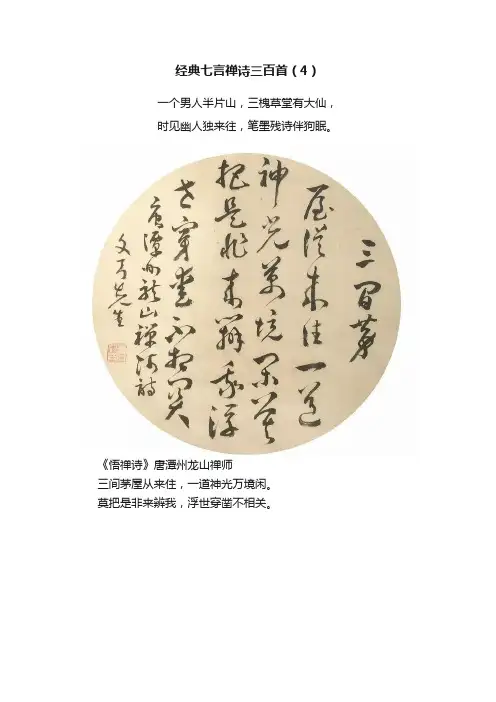 经典七言禅诗三百首（4）
一个男人半片山，三槐草堂有大仙，
时见幽人独来往，笔墨残诗伴狗眠。
三間茅
屋從来住一道
神光萬境閑莫
把是非来辨我浮
世穿鑿不相関
唐潭州龍山禅師詩
先生
《悟禅诗》唐潭州龙山禅师
三间茅屋从来住，一道神光万境闲。
莫把是非来辨我，浮世穿凿不相关。